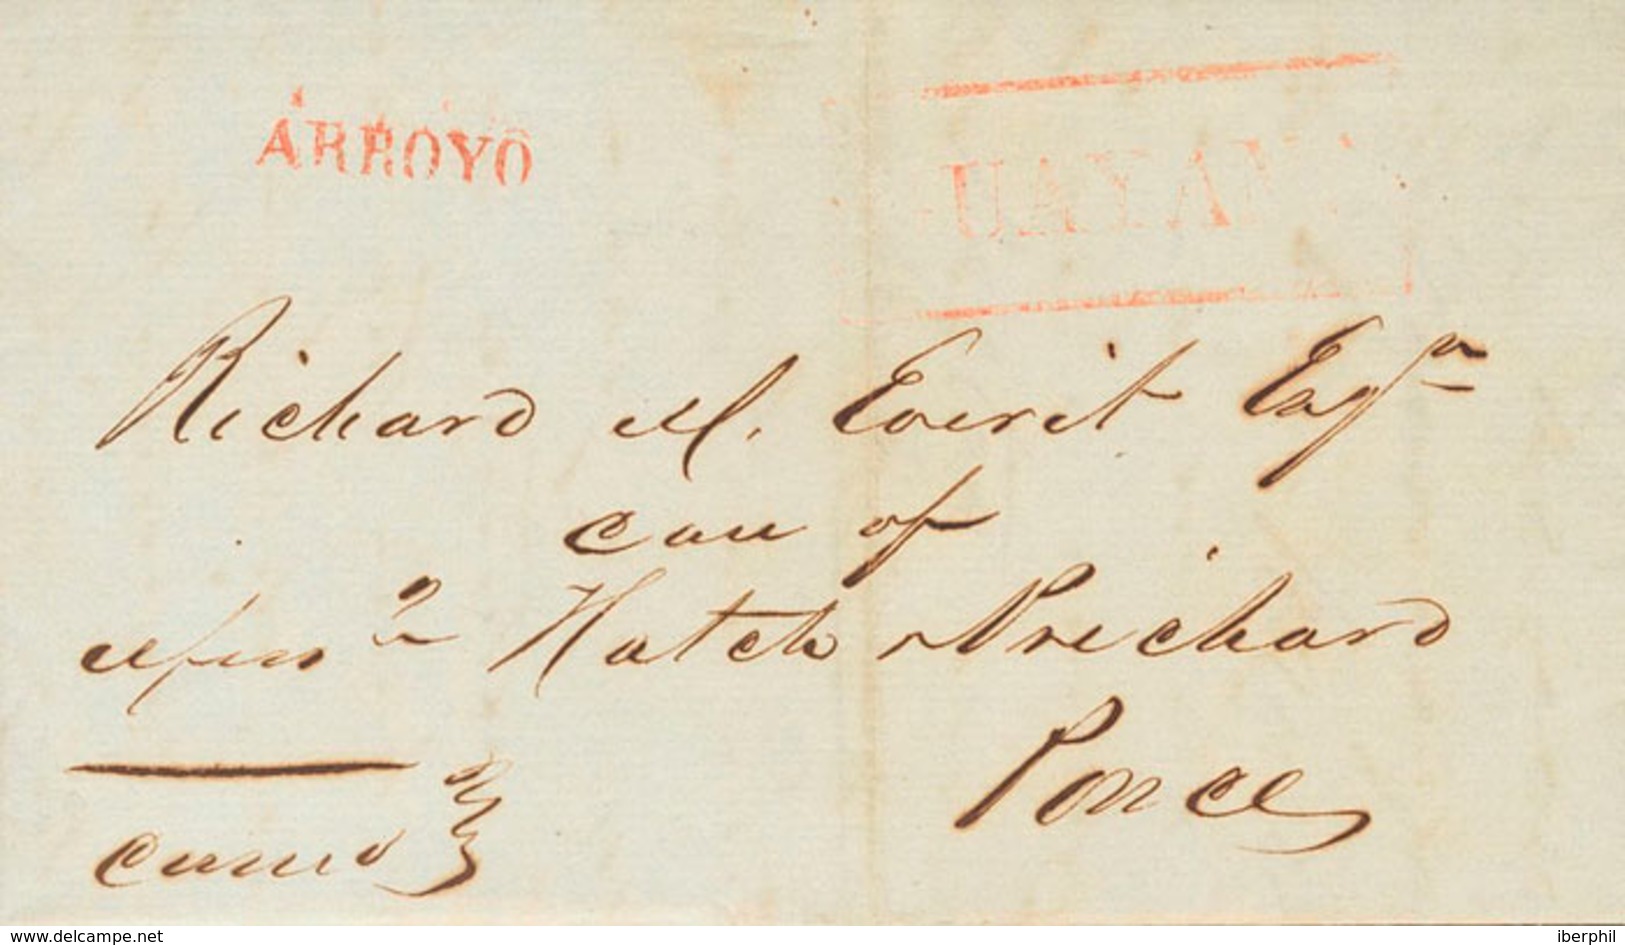 ARROYO
GUAYAMA
Richard M. Everit Esqr
care of
Hatch Prichard
Ponce
www.delcampe.net
iberphil